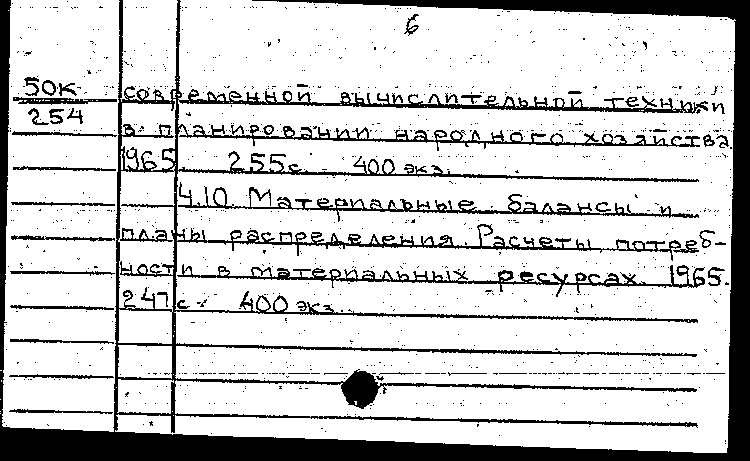 6
50К современной вычислительной техники
254
в планировании народного хозяйства.
1965 255с. 400 экз.
Ч.10. Материальные балансы и
планы распределения. Расчеты потреб-
ности в материальных ресурсах. 1965.
247с. 400 экз.